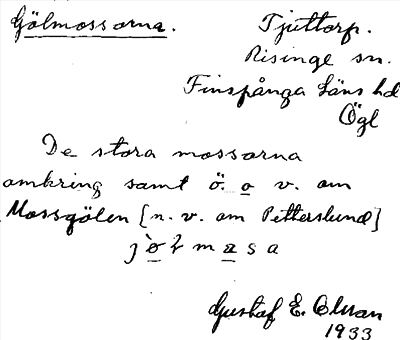 Gölmossarna. Tjuttorp.
Risinge sn.
Finspånga läns hd
Ögl
De stora mossarna
omkring samt ö. o v. om
Mossgölen [n. v. om Petterslund]
Gustaf E. 
1933